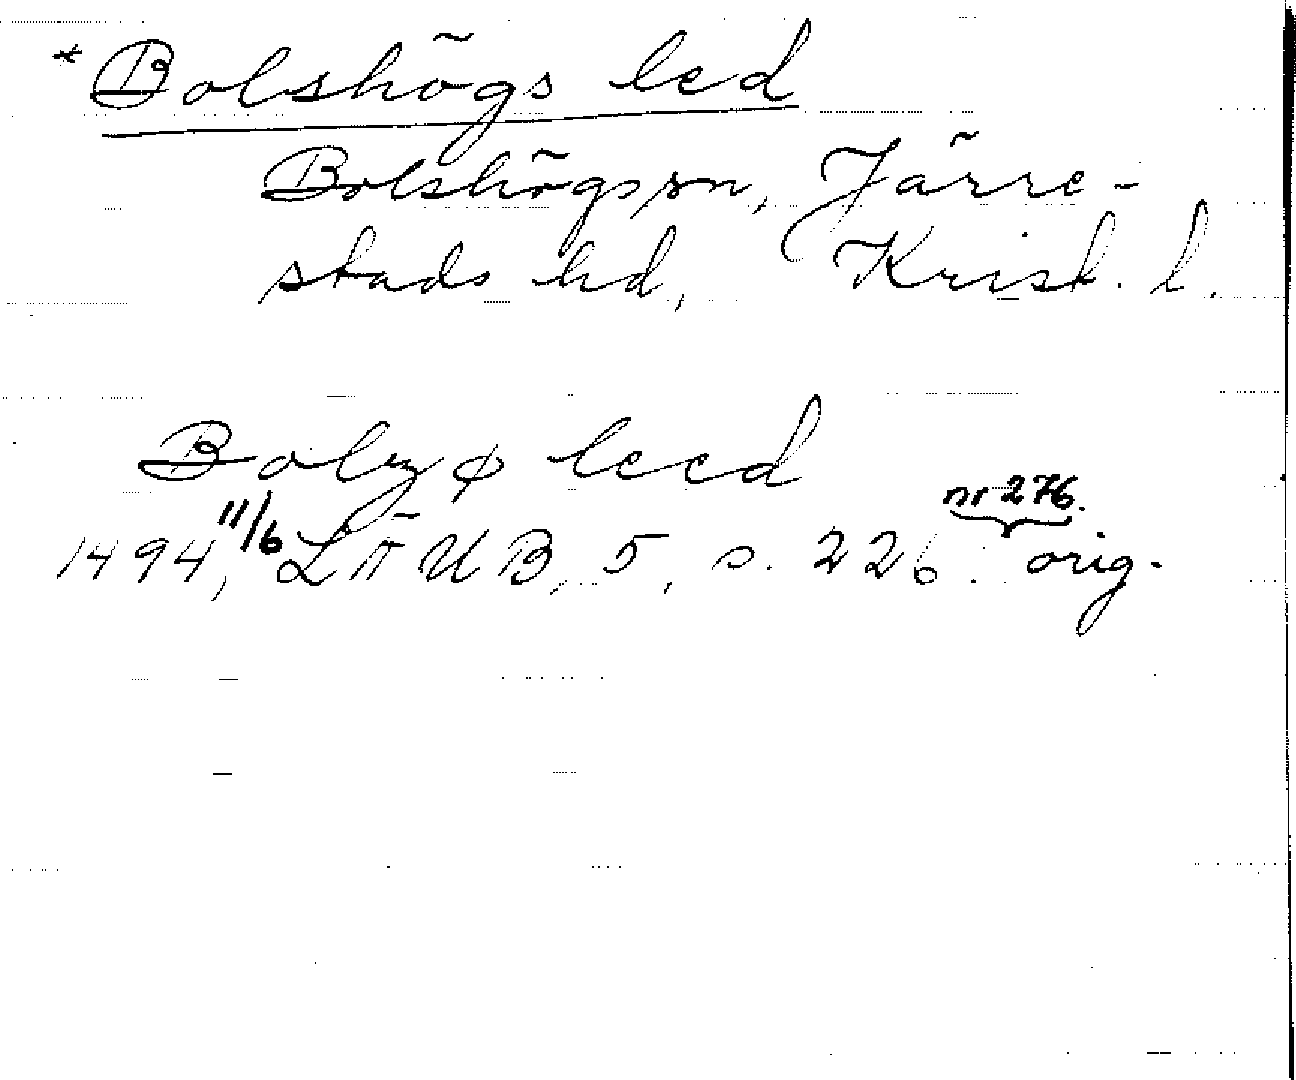 * Bolshögs led
Bolshögs sn, Järre-
stads hd, Krist. l.
Bolzø leed
nr 276.
1494, 11/6 LÄUB, 5, s. 226. orig.